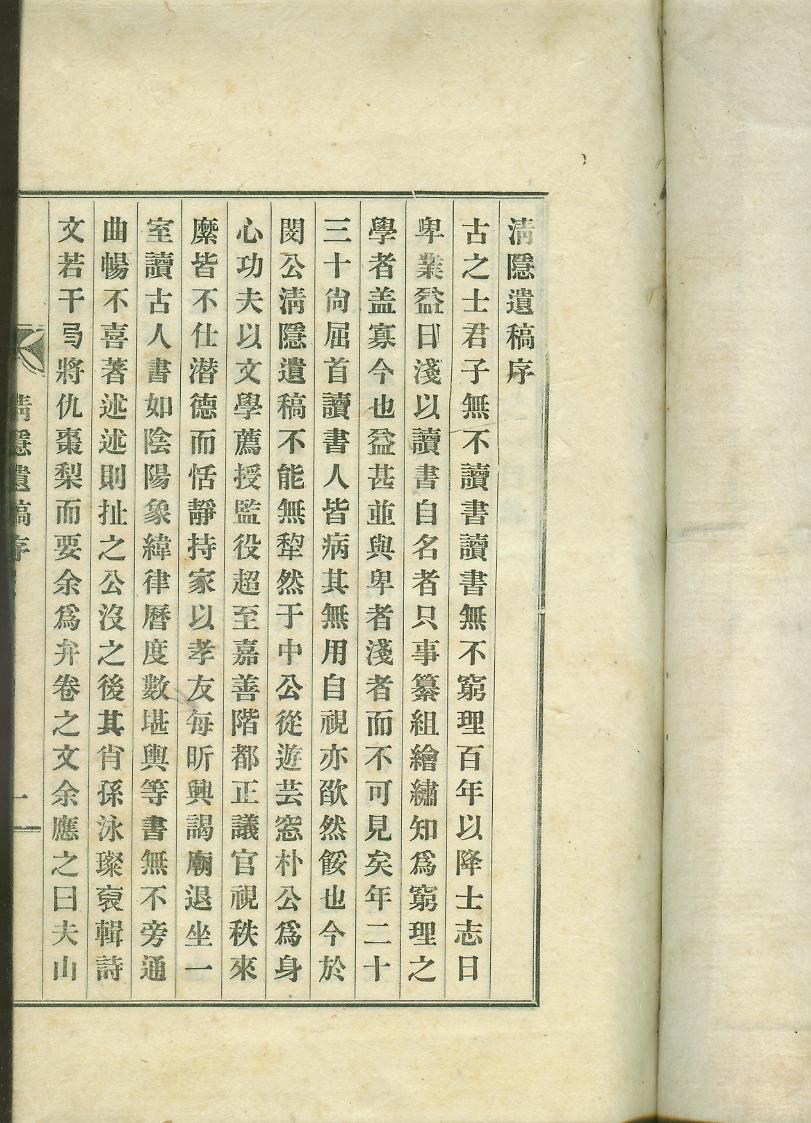 淸隱遺稿序
古之士君子無不讀書讀書無不窮理百年以降士志日
卑業益日淺以讀書自名者只事纂組繪繡知爲窮理之
學者盖寡今也益甚並與卑者淺者而不可見矣年二十
三十尙屈首讀書人皆病其無用自視亦欿然餒也今於
閔公淸隱遺稿不能無犂然于中公從遊芸窩朴公爲身
心功夫以文學薦授監役超至嘉善階都正議官視秩來
縻皆不仕潜德而恬靜持家以孝友每昕興謁廟退坐一
室讀古人書如陰陽象緯律曆度數堪輿等書無不旁通
曲暢不喜著述述則扯之公沒之後其肖孫泳璨裒輯詩
文若干局將仇棗梨而要余爲弁卷之文余應之曰夫山
淸隱遺稿序
一